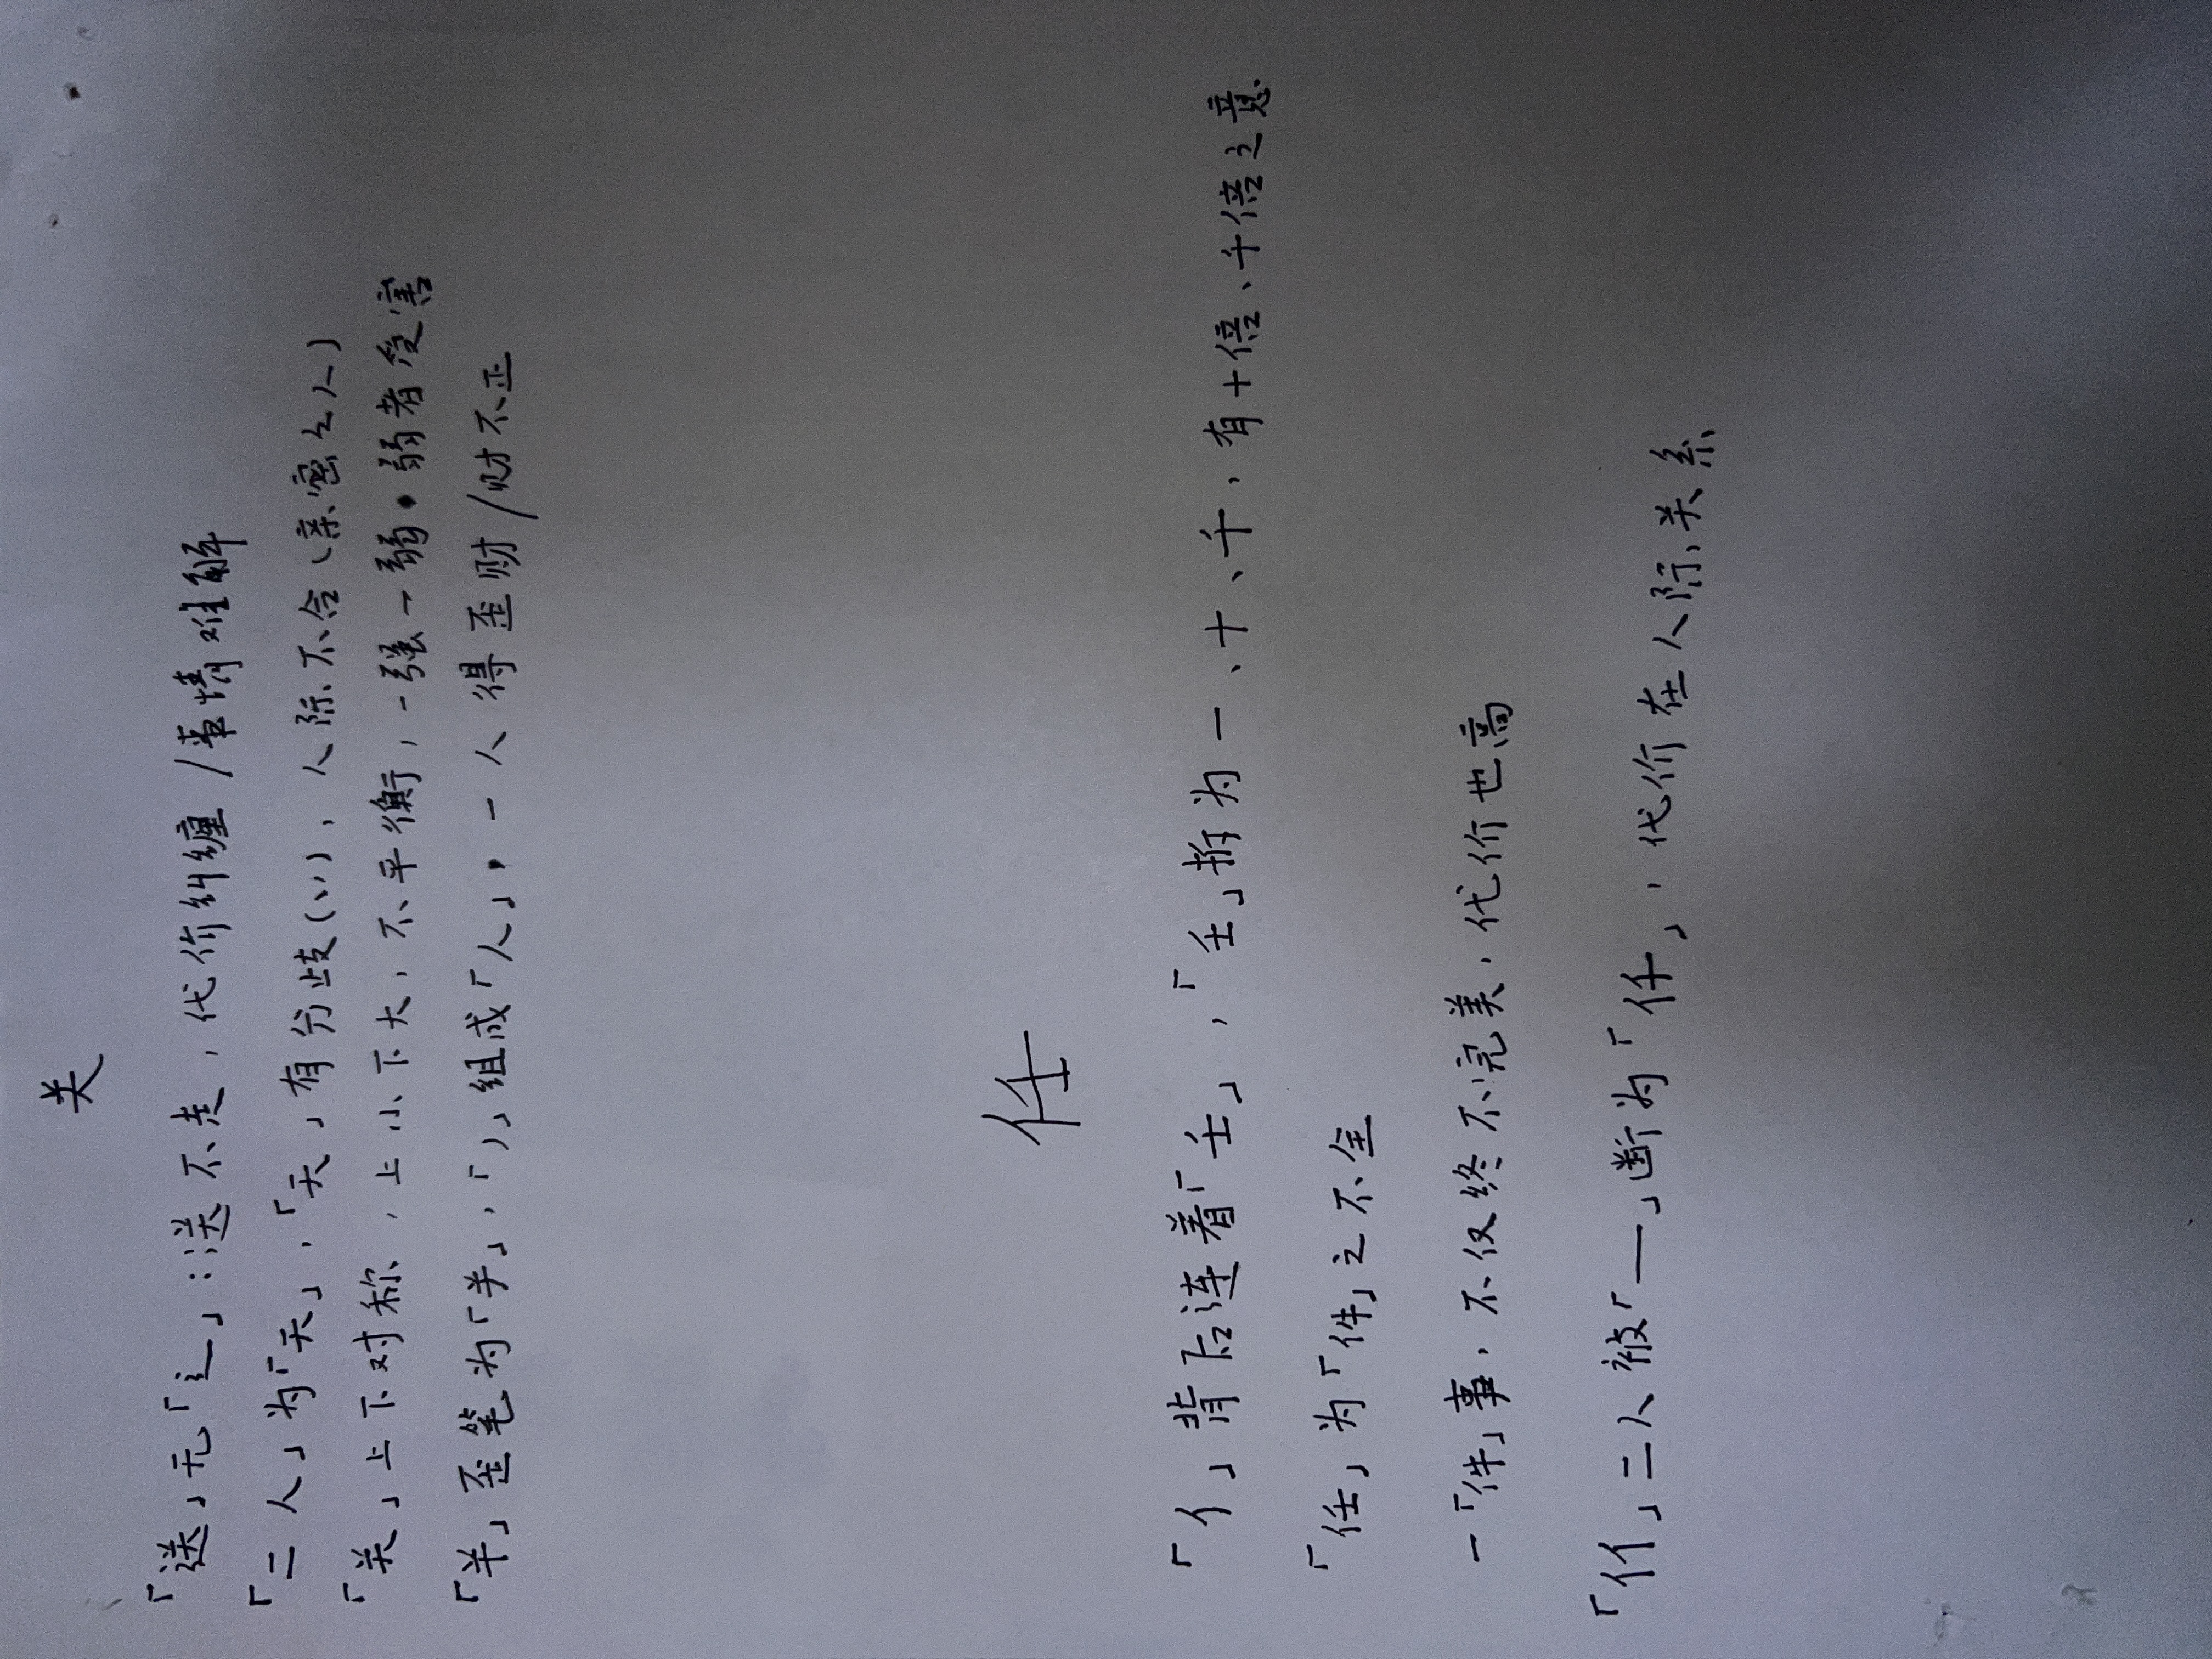 关
「送」无「辶」:送不走，代价纠缠/事情难解
「二人」为「天」，「天」有分歧(丷)，人际不合(亲密之人)
「关」上下对称，上小下大，不平衡，一强一弱，弱者受害
「羊」歪笔为「𦍌」，「丿」组成「人」，一人得歪财/财不正
任
「亻」背后连着「壬」，「壬」拆为一、十、千，有十倍、千倍之意
「任」为「件」之不全
一「件」事，不仅终不完美，代价也高
「㐰」二人被「一」断为「仟」，代价在人际关系